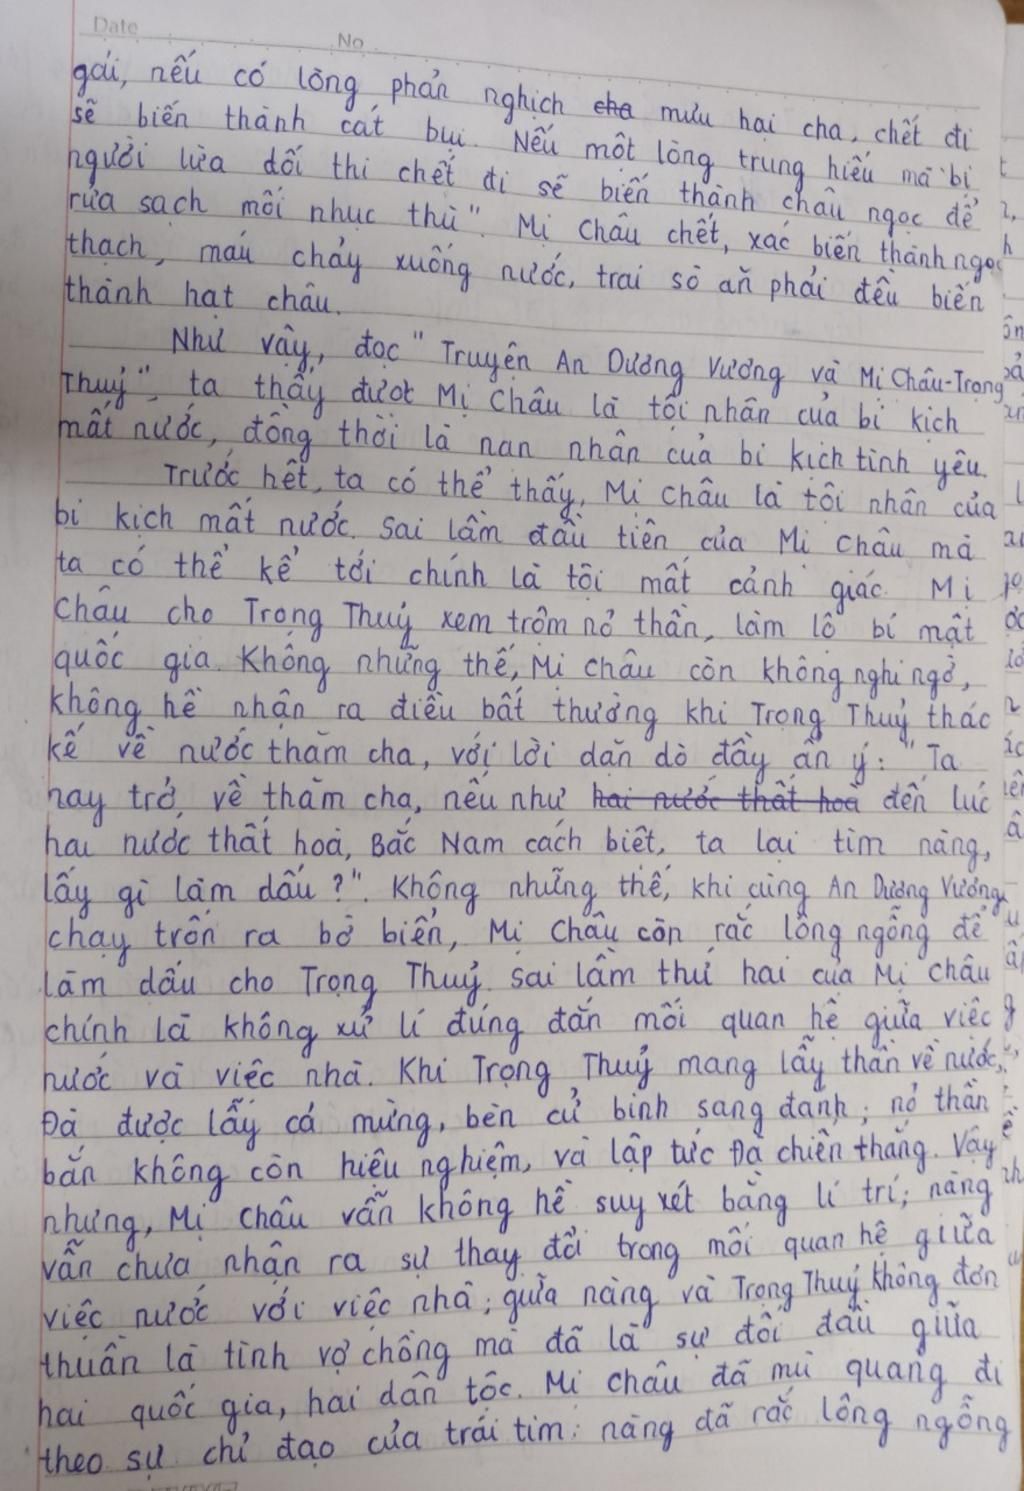 Date No
gái, nếu có lòng phản nghịch cha mưu hại cha, chết đi
sẽ biến thành cát bụi. Nếu một lòng trung hiếu mà bị
người lừa dối thì chết đi sẽ biến thành châu ngọc để
rửa sạch mối nhục thù". Mị Châu chết, xác biến thành ngọc
thạch, máu chảy xuống nước, trai sò ăn phải đều biến
thành hạt châu.
Như vậy, đọc "Truyện An Dương Vương và Mị Châu-Trọng
Thuỷ", ta thấy được Mị Châu là tội nhân của bi kịch
mất nước, đồng thời là nạn nhân của bi kịch tình yêu.
Trước hết, ta có thể thấy, Mị Châu là tội nhân của
bi kịch mất nước. Sai lầm đầu tiên của Mị Châu mà
ta có thể kể tới chính là tội mất cảnh giác. Mị
Châu cho Trọng Thuỷ xem trộm nỏ thần, làm lộ bí mật
quốc gia. Không những thế, Mị Châu còn không nghi ngờ,
không hề nhận ra điều bất thường khi Trọng Thuỷ thác
kế về nước thăm cha, với lời dặn dò đầy ẩn ý: "Ta
nay trở về thăm cha, nếu như hai nước thất hoà đến lúc
hai nước thất hoà, Bắc Nam cách biệt, ta lại tìm nàng,
lấy gì làm dấu?". Không những thế, khi cùng An Dương Vương
chạy trốn ra bờ biển, Mị Châu còn rắc lông ngỗng để
làm dấu cho Trọng Thuỷ. Sai lầm thứ hai của Mị Châu
chính là không xử lí đúng đắn mối quan hệ giữa việc
nước và việc nhà. Khi Trọng Thuỷ mang lẫy thần về nước,
Đà được lẫy cả mừng, bèn cử binh sang đánh; nỏ thần
bắn không còn hiệu nghiệm, và lập tức Đà chiến thắng. Vậy
nhưng, Mị Châu vẫn không hề suy xét bằng lí trí; nàng
vẫn chưa nhận ra sự thay đổi trong mối quan hệ giữa
việc nước với việc nhà; giữa nàng và Trọng Thuỷ không đơn
thuần là tình vợ chồng mà đã là sự đối đầu giữa
hai quốc gia, hai dân tộc. Mị Châu đã mù quáng đi
theo sự chỉ đạo của trái tim: nàng đã rắc lông ngỗng